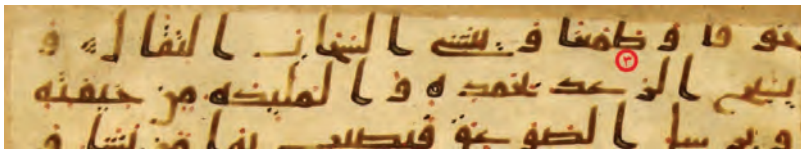 خوفا و طمعا و ينشى السحاب الثقال و
٣
يسبح الرعد بحمده و الملئكه من خيفته
و يرسل الصوعق فيصيب بها من يشا و